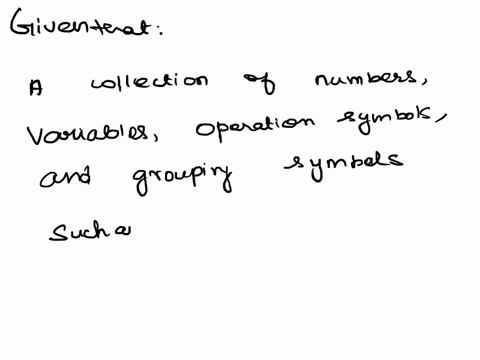 Given that:
A collection of numbers,
Variables, operation symbols,
and grouping symbols
Such a